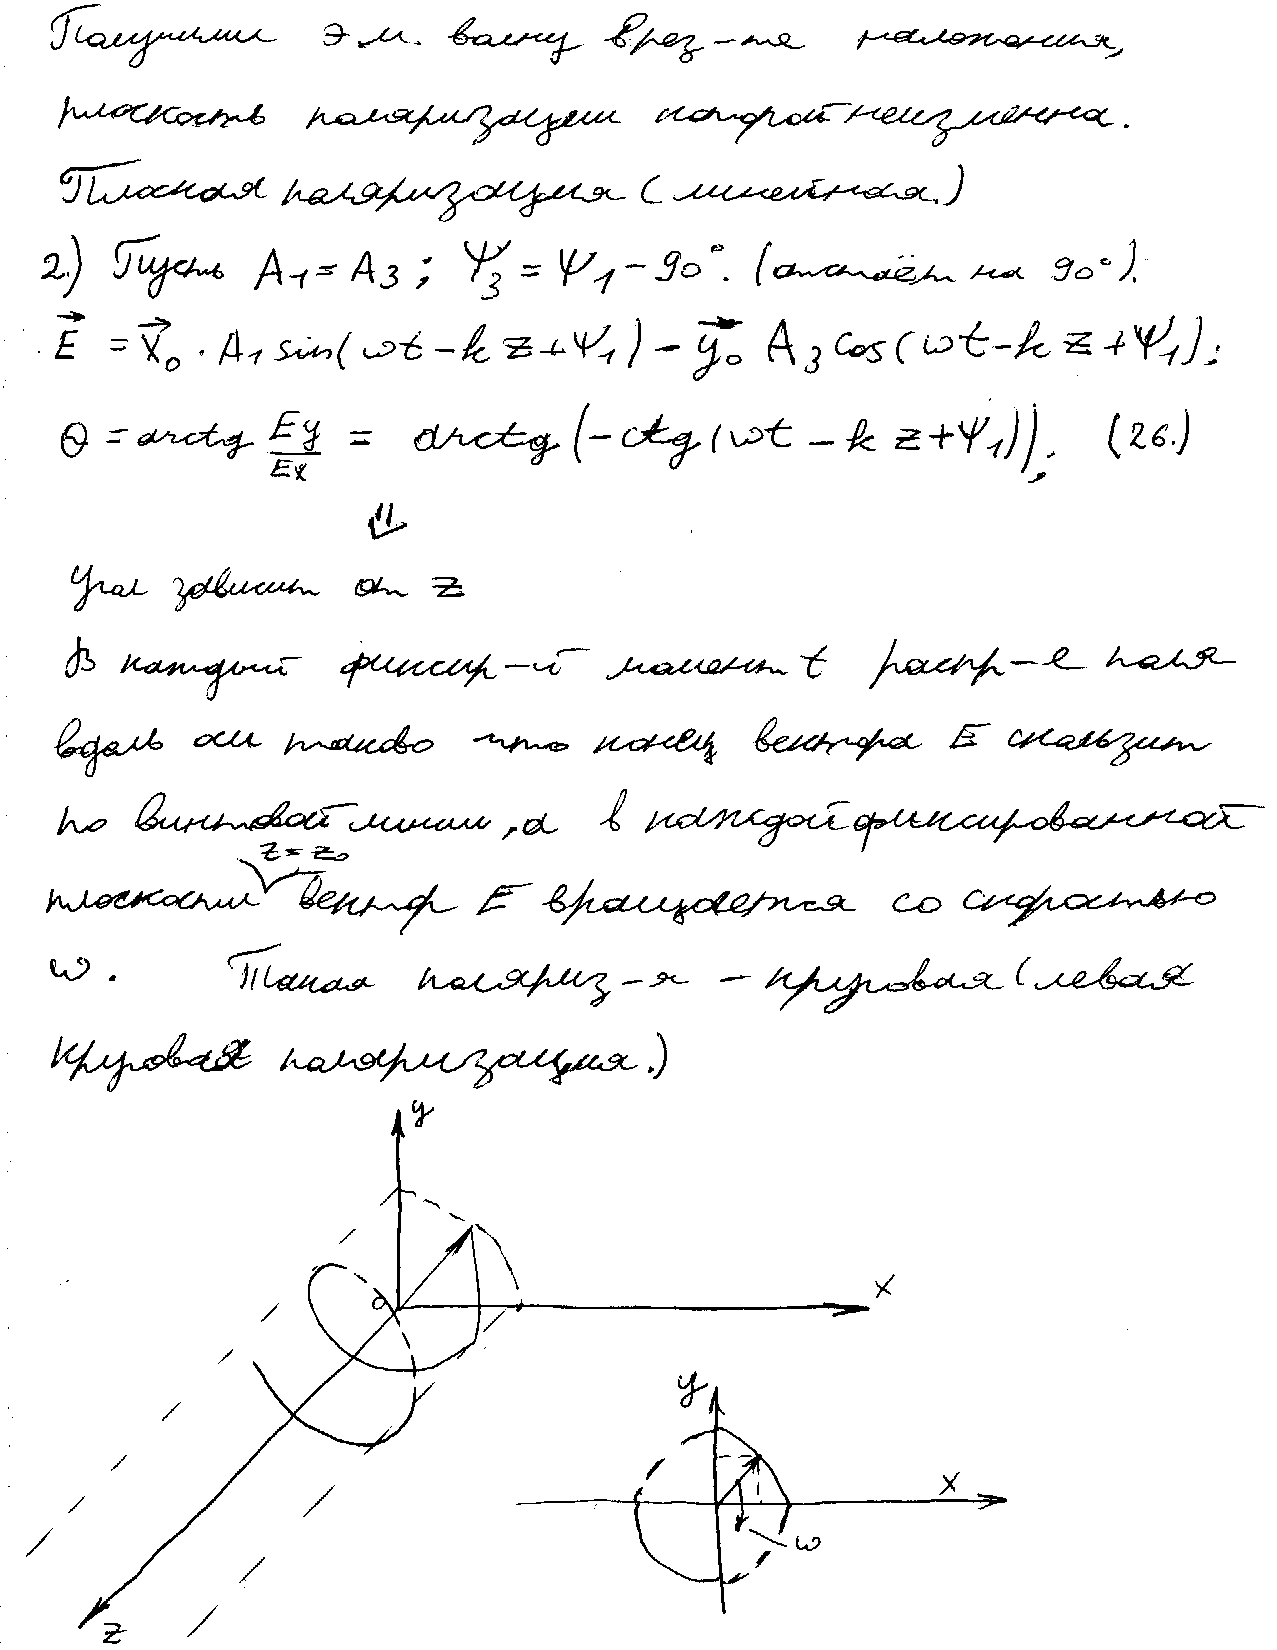 Получили э.м. волну в рез-те наложения,
плоскость поляризации которой неизменна.
Плоская поляризация (линейная.)
2.) Пусть A1 = A3 ; Ψ3 = Ψ1 - 90°. (отстаёт на 90°).
E⃗ = x⃗0 · A1 sin(ωt - kz + Ψ1) - y⃗0 A3 cos(ωt - kz + Ψ1);
Θ = arctg Ey/Ex = arctg (-ctg(ωt - kz + Ψ1)); (26.)
⇓
Угол зависит от z
В каждый фиксир-й момент t распр-е поля
вдоль оси таково что конец вектора E скользит
по винтовой линии, а в каждой фиксированной
z = z0
плоскости вектор E вращается со скоростью
ω. Такая поляриз-я - круговая (левая
круговая поляризация.)
y
0
x
z
y
x
ω